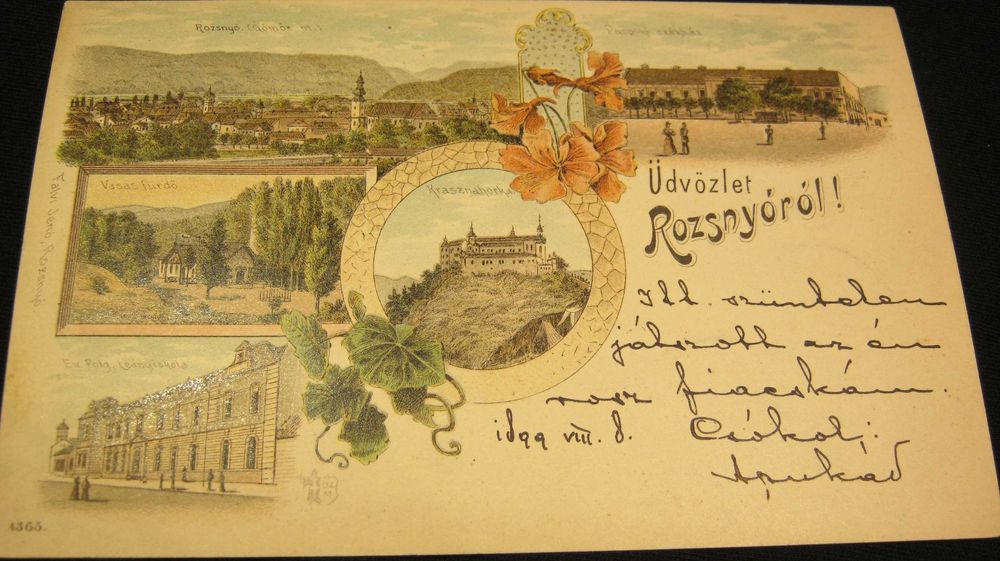 Rozsnyó. (Gömör m.)
Püspöki székház
Vasas fürdő
Krasznahorka
Üdvözlet
Rozsnyóról!
Itt szüntelen
játszott az én
rosz fiacskám.
1899 VIII. 8. Csókol:
Apukád
Ev. Polg. Leányiskola
Falvi Jenő, Rozsnyó
1365.